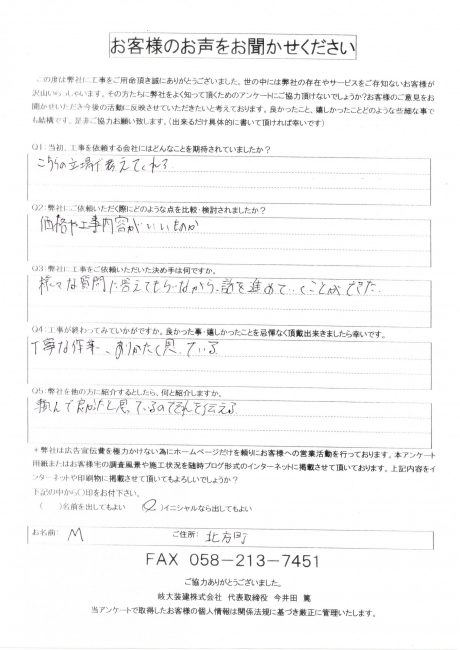 お客様のお声をお聞かせください
この度は弊社に工事をご用命頂き誠にありがとうございました。世の中には弊社の存在やサービスをご存知ないお客様が
沢山いらっしゃいます。その方たちに弊社をよく知って頂くためのアンケートにご協力頂けないでしょうか?お客様のご意見をお
聞かせいただき今後の活動に反映させていただきたいと考えております。良かったこと、嬉しかったことどのような些細な事で
も結構です。是非ご協力お願い致します。(出来るだけ具体的に書いて頂ければ幸いです)
Q1:当初、工事を依頼する会社にはどんなことを期待されていましたか?
こちらの立場で考えてくれる
Q2:弊社にご依頼いただく際にどのような点を比較・検討されましたか?
価格や工事内容がいいものか
Q3:弊社に工事をご依頼いただいた決め手は何ですか。
様々な質問に答えてもらいながら、話を進めていくことができた.
Q4:工事が終わってみていかがですか。良かった事・嬉しかったことを忌憚なく頂戴出来ましたら幸いです。
丁寧な作業で、ありがたく思っている
Q5:弊社を他の方に紹介するとしたら、何と紹介しますか。
頼んで良かったと思っているのでそれを伝える
+弊社は広告宣伝費を極力かけない為にホームページだけを頼りにお客様への営業活動を行っております。本アンケート
用紙またはお客様宅の調査風景や施工状況を随時ブログ形式のインターネットに掲載させて頂いております。上記内容をイ
ンターネットや印刷物に掲載させて頂いてもよろしいでしょうか?
下記の中から○印をお付下さい。
( )名前を出してもよい (○)イニシャルなら出してもよい
お名前: M ご住所: 北方町
FAX 058-213-7451
ご協力ありがとうございました。
岐大装建株式会社 代表取締役 今井田 篤
当アンケートで取得したお客様の個人情報は関係法規に基づき厳正に管理いたします。